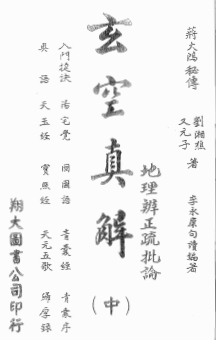 蔣大鴻秘傳
劉湘恆
又元子
著
李永康句讀編著
地理辨正疏批論
玄空真解
（中）
入門捷訣 陽宅覺 國國語 青囊經 青囊序
奧語 天玉經 寶照經 天元五歌 歸厚錄
翔大圖書公司印行